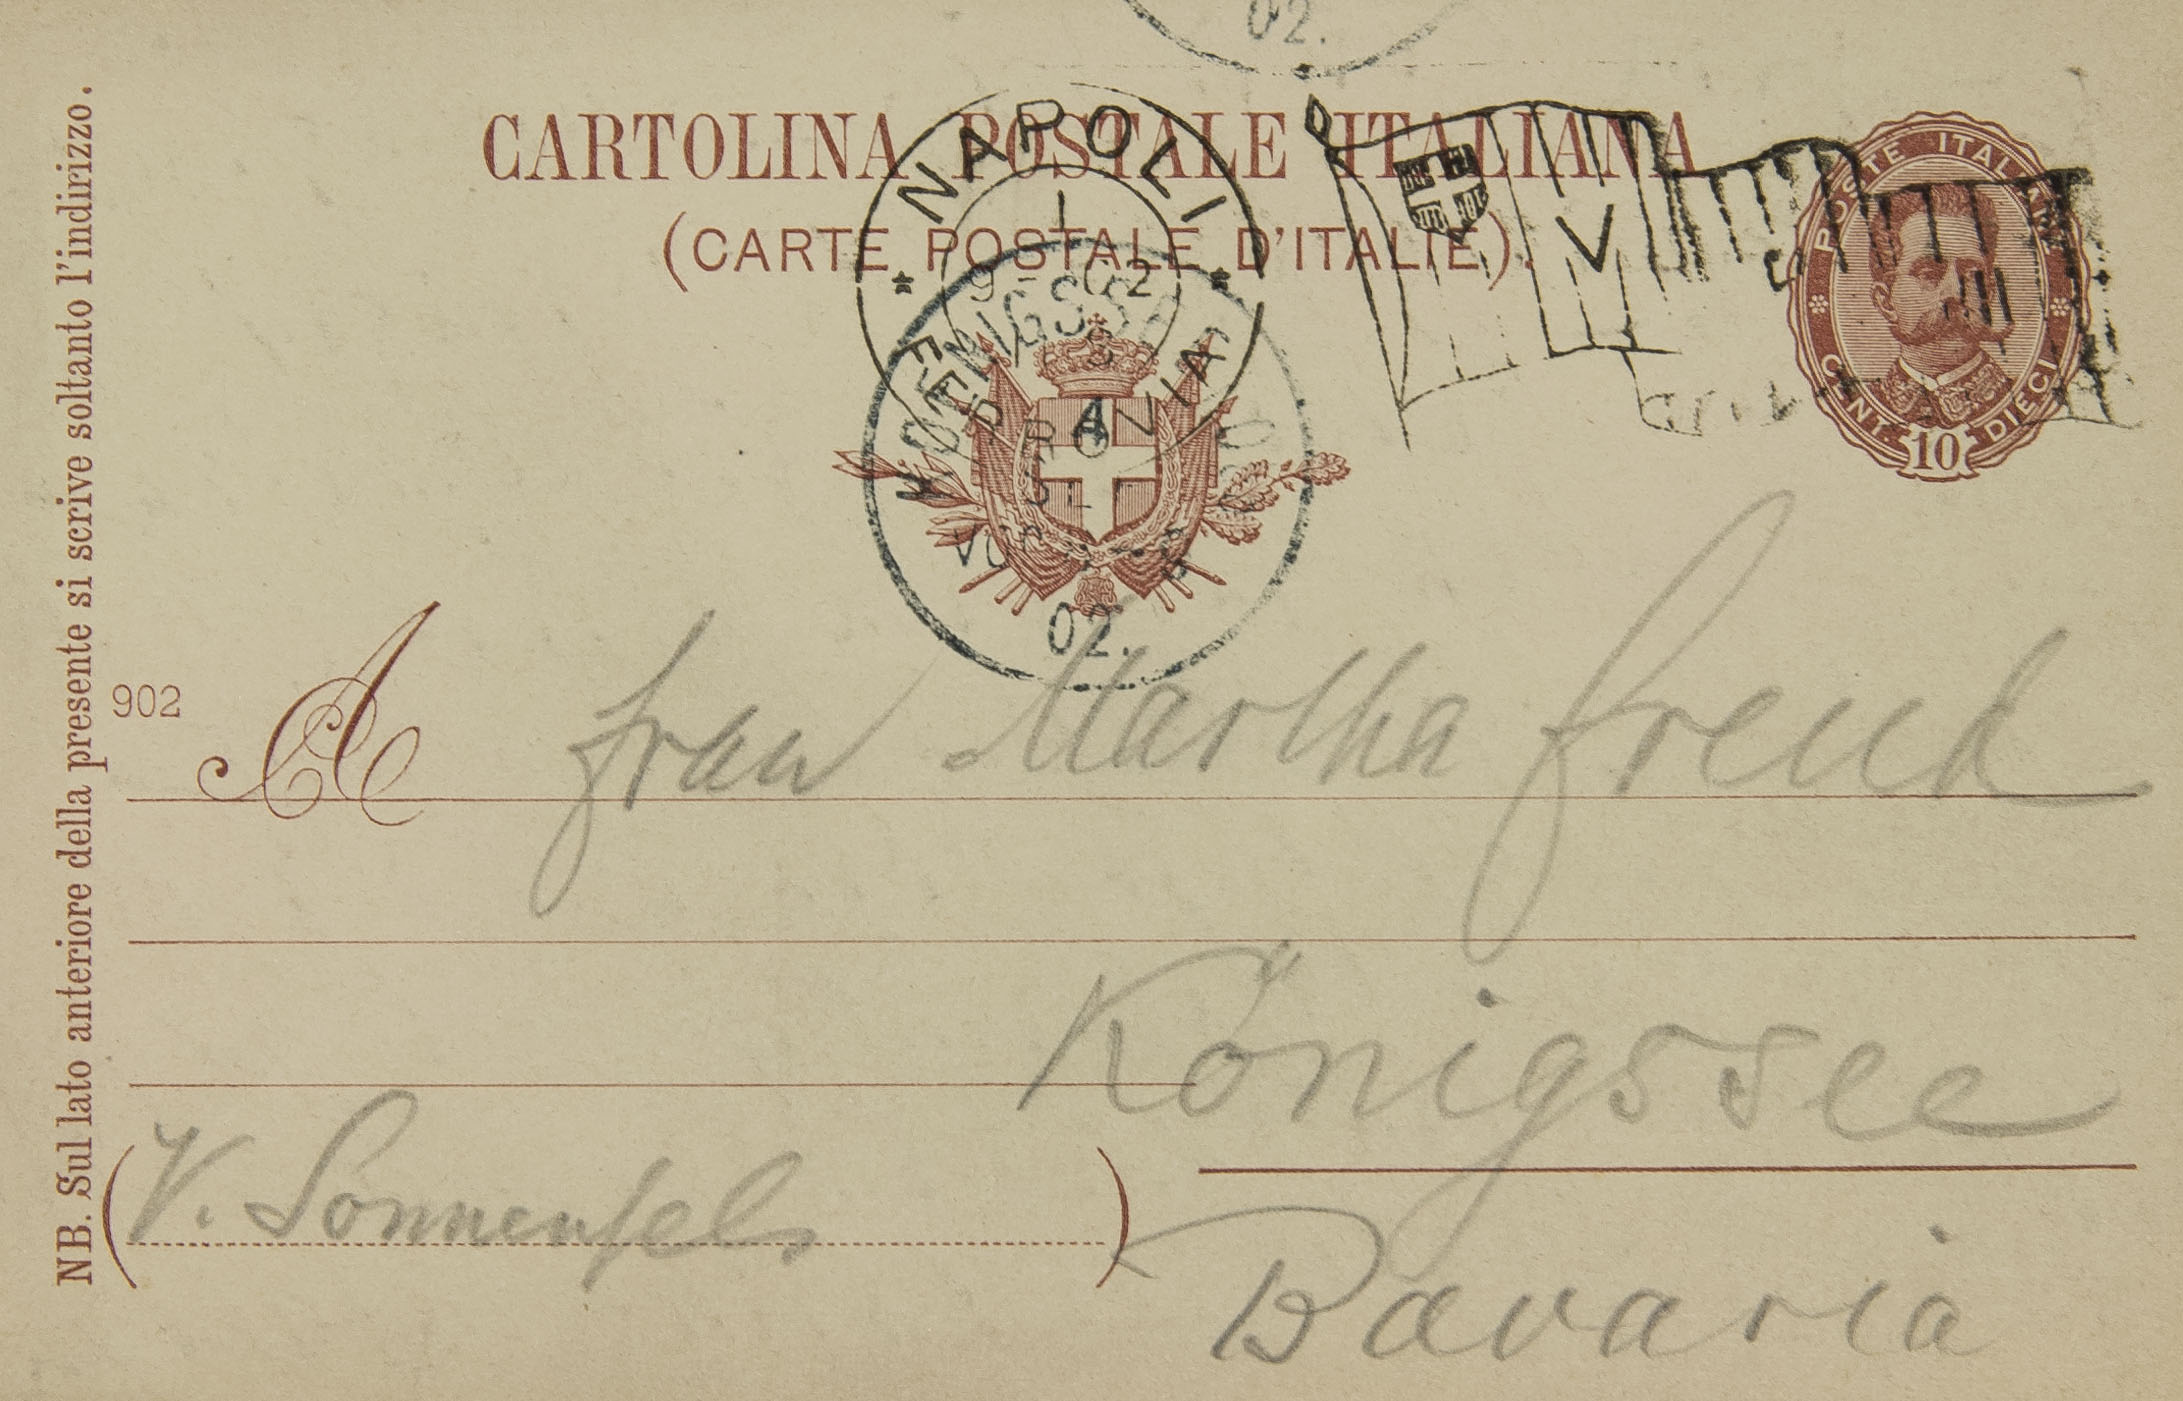 02.
CARTOLINA POSTALE ITALIANA
(CARTE POSTALE D'ITALIE).
NAPOLI
FERROVIA
V
III
POSTE ITALIANE
CENT. 10 DIECI
KOENIGSSEE
02.
NB. Sul lato anteriore della presente si scrive soltanto l'indirizzo.
902
A Frau Martha Freud
Königssee
V. Sonnenfels
Bavaria